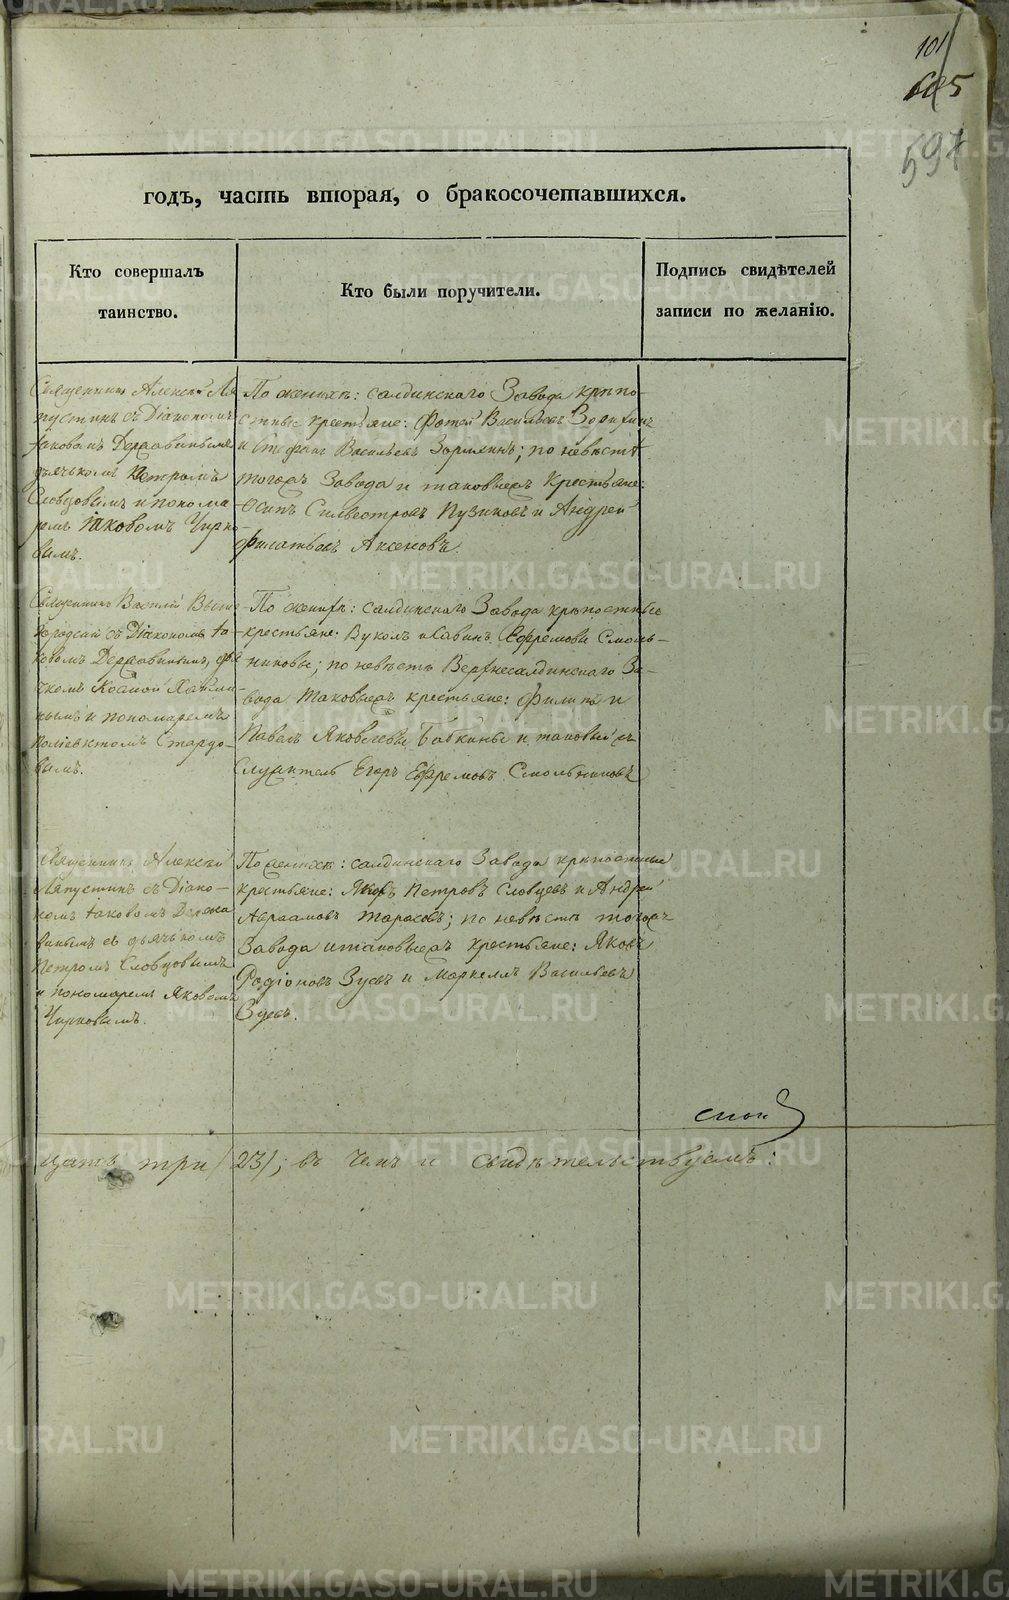 101
605
597
годъ, часть вторая, о бракосочетавшихся.
Кто совершалъ
таинство.
Кто были поручители.
Подпись свидѣтелей
записи по желанію.
Священникъ Алексѣй Ля
пустинъ съ Діакономъ
Іаковомъ Державинымъ
дьячькомъ Петромъ
Словцовымъ и понома
ремъ Іаковомъ Чирко
вымъ.
По женихѣ: салдинскаго Завода крѣпо-
стные крестьяне: Фотей Васильевъ
и Стефанъ Васильевъ Зорихинъ; по невѣстѣ
тогожъ Завода и таковыежъ Крестьяне:
Осипъ Силвестровъ Пузиковъ и Андрей
Филатьевъ Аксеновъ.
Священникъ Василій
съ Діакономъ Іа-
ковомъ Державинымъ, дья
чкомъ Космой
нымъ и пономаремъ
Поліевктомъ Стардо-
вымъ.
По женихѣ: салдинскаго Завода крѣпостные
крестьяне: Вуколъ и Савинъ Ефремовы Смоль-
никовы; по невѣстѣ Верхнесалдинскаго За-
вода таковыежъ крестьяне: Филипъ и
Павелъ Яковлевы Бабкины и таковый жъ
Служитель Егоръ Ефремовъ Смольниковъ
Священникъ Алексѣй
Ляпустинъ съ Діако-
номъ Іаковомъ Держа
винымъ съ дьячькомъ
Петромъ Словцовымъ
и пономаремъ Яковомъ
Чирковымъ.
По женихѣ: салдинскаго Завода крѣпостные
крестьяне: Петровъ Словцевъ и Андрей
Авраамовъ Тарасовъ; по невѣстѣ тогожъ
Завода и таковыежъ крестьяне: Яковъ
Родіоновъ Зуевъ и Маркеллъ Васильевъ
Зуевъ.
цать три /23/; въ чемъ и свидѣтельствуемъ:
METRIKI.GASO-URAL.RU